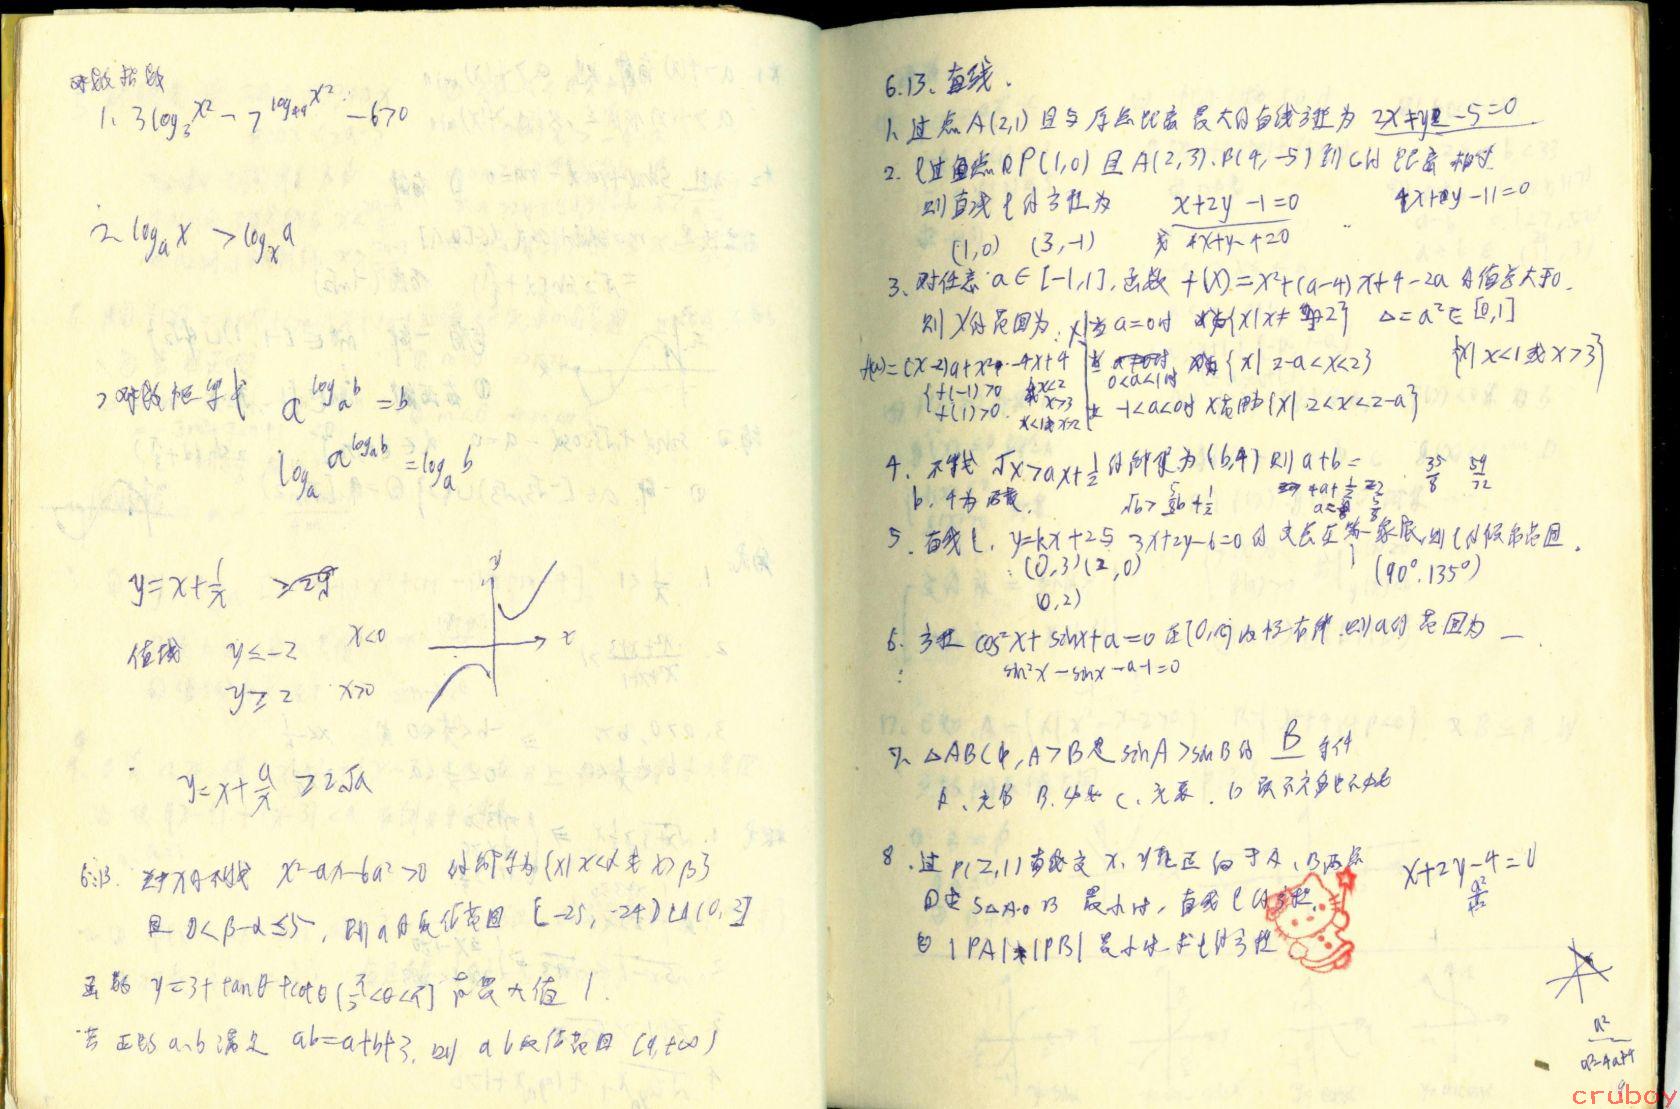 对数 指数
1、3log₃x² - 7^log₄₉x² - 6>0
2 logₐx > logₓa
> 对数恒等式 a^logₐb = b
logₐa^logₐb = logₐb
y=x+1/x
值域 y≤-2 x<0
y≥2 x>0
y
x
y=x+a/x ≥2√a
6.13. 关于x的不等式 x²-ax-6a²>0 的解集为{x|x<α或x>β}
且0<β-α≤5, 则a的取值范围
函数 y=3+tanθ+cotθ(π/2<θ<π) 有最大值 1.
若正数a、b满足 ab=a+b+3, 则 ab取值范围 [9,+∞)
6.13. 直线.
1、过点A(2,1)且与原点距离最大的直线方程为 2x+y-5=0
2. l过点P(1,0)且A(2,3).B(4,-5)到l的距离相等
则直线l的方程为 x+2y-1=0 4x+y-11=0
(1,0) (3,-1)
3、对任意a∈[-1,1], 函数f(x)=x²+(a-4)x+4-2a的值总大于0.
则x的范围为: 当a=0时 {x|x≠2} Δ=a²∈[0,1]
f(a)=(x-2)a+x²-4x+4 当 0<a<1时 {x|2-a<x<2} {x|x<1或x>3}
{f(-1)>0 x<2 x>3
f(1)>0. x<1或x>2 当 -1<a<0时 {x|2<x<2-a}
4、不等式 √x>ax+1/2的解集为(b,4)则a+b= 35/8 59/72
b、4为 √b> b+1/2
5、直线l, y=kx+2与3x+2y-6=0的交点在第一象限, 则l的倾角范围.
(0,3)(2,0) (90°.135°)
(0,2)
6、方程 cos²x+sinx+a=0在 内恒有解.则a的范围为 —
sin²x-sinx-a-1=0
7、△ABC中, A>B是sinA>sinB的 B 条件
A、充分 B、必要 C、充要. D 既不充分也不必要
8、过P(2,1)直线交x、y轴正向于A、B两点 x+2y-4=0
①求S△AOB最小时, 直线l的方程
② |PA|·|PB|最小时求l的方程
a²
a²-4a+4
cruboy